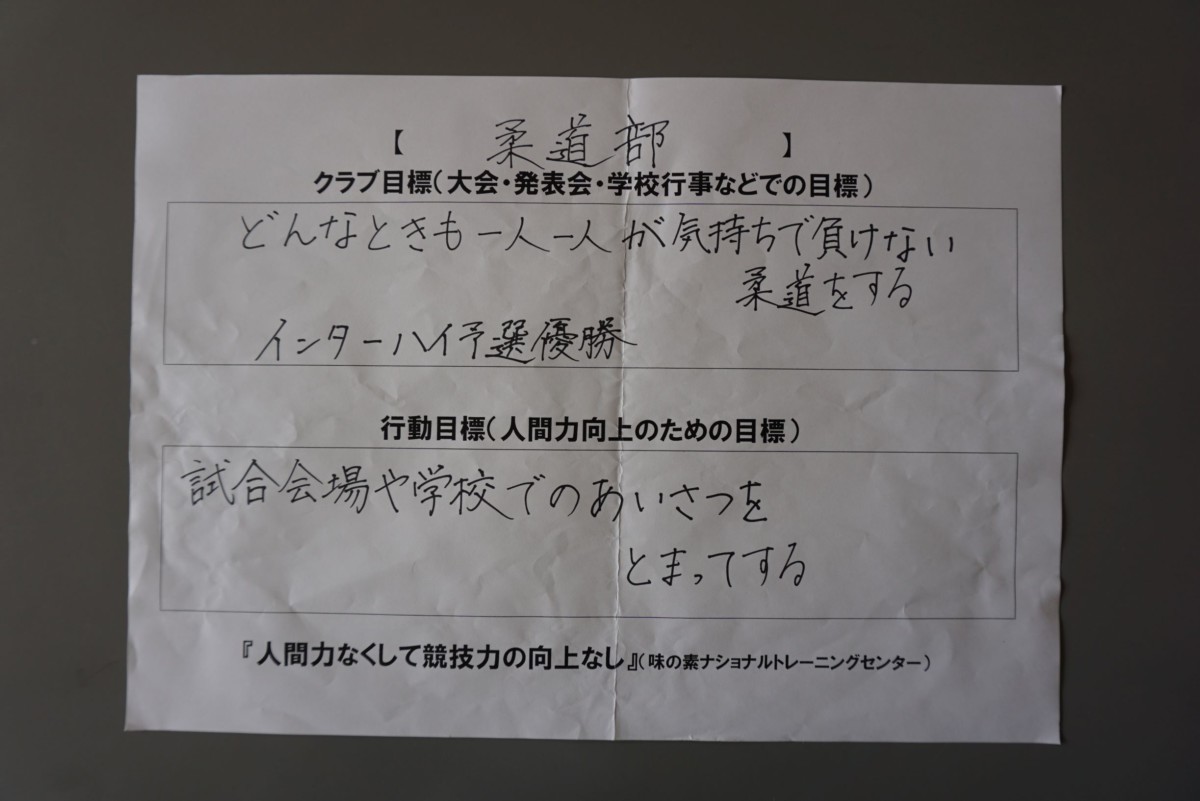 【 柔道部 】
クラブ目標（大会・発表会・学校行事などでの目標）
どんなときも一人一人が気持ちで負けない
柔道をする
インターハイ予選優勝
行動目標（人間力向上のための目標）
試合会場や学校でのあいさつを
とまってする
『人間力なくして競技力の向上なし』（味の素ナショナルトレーニングセンター）